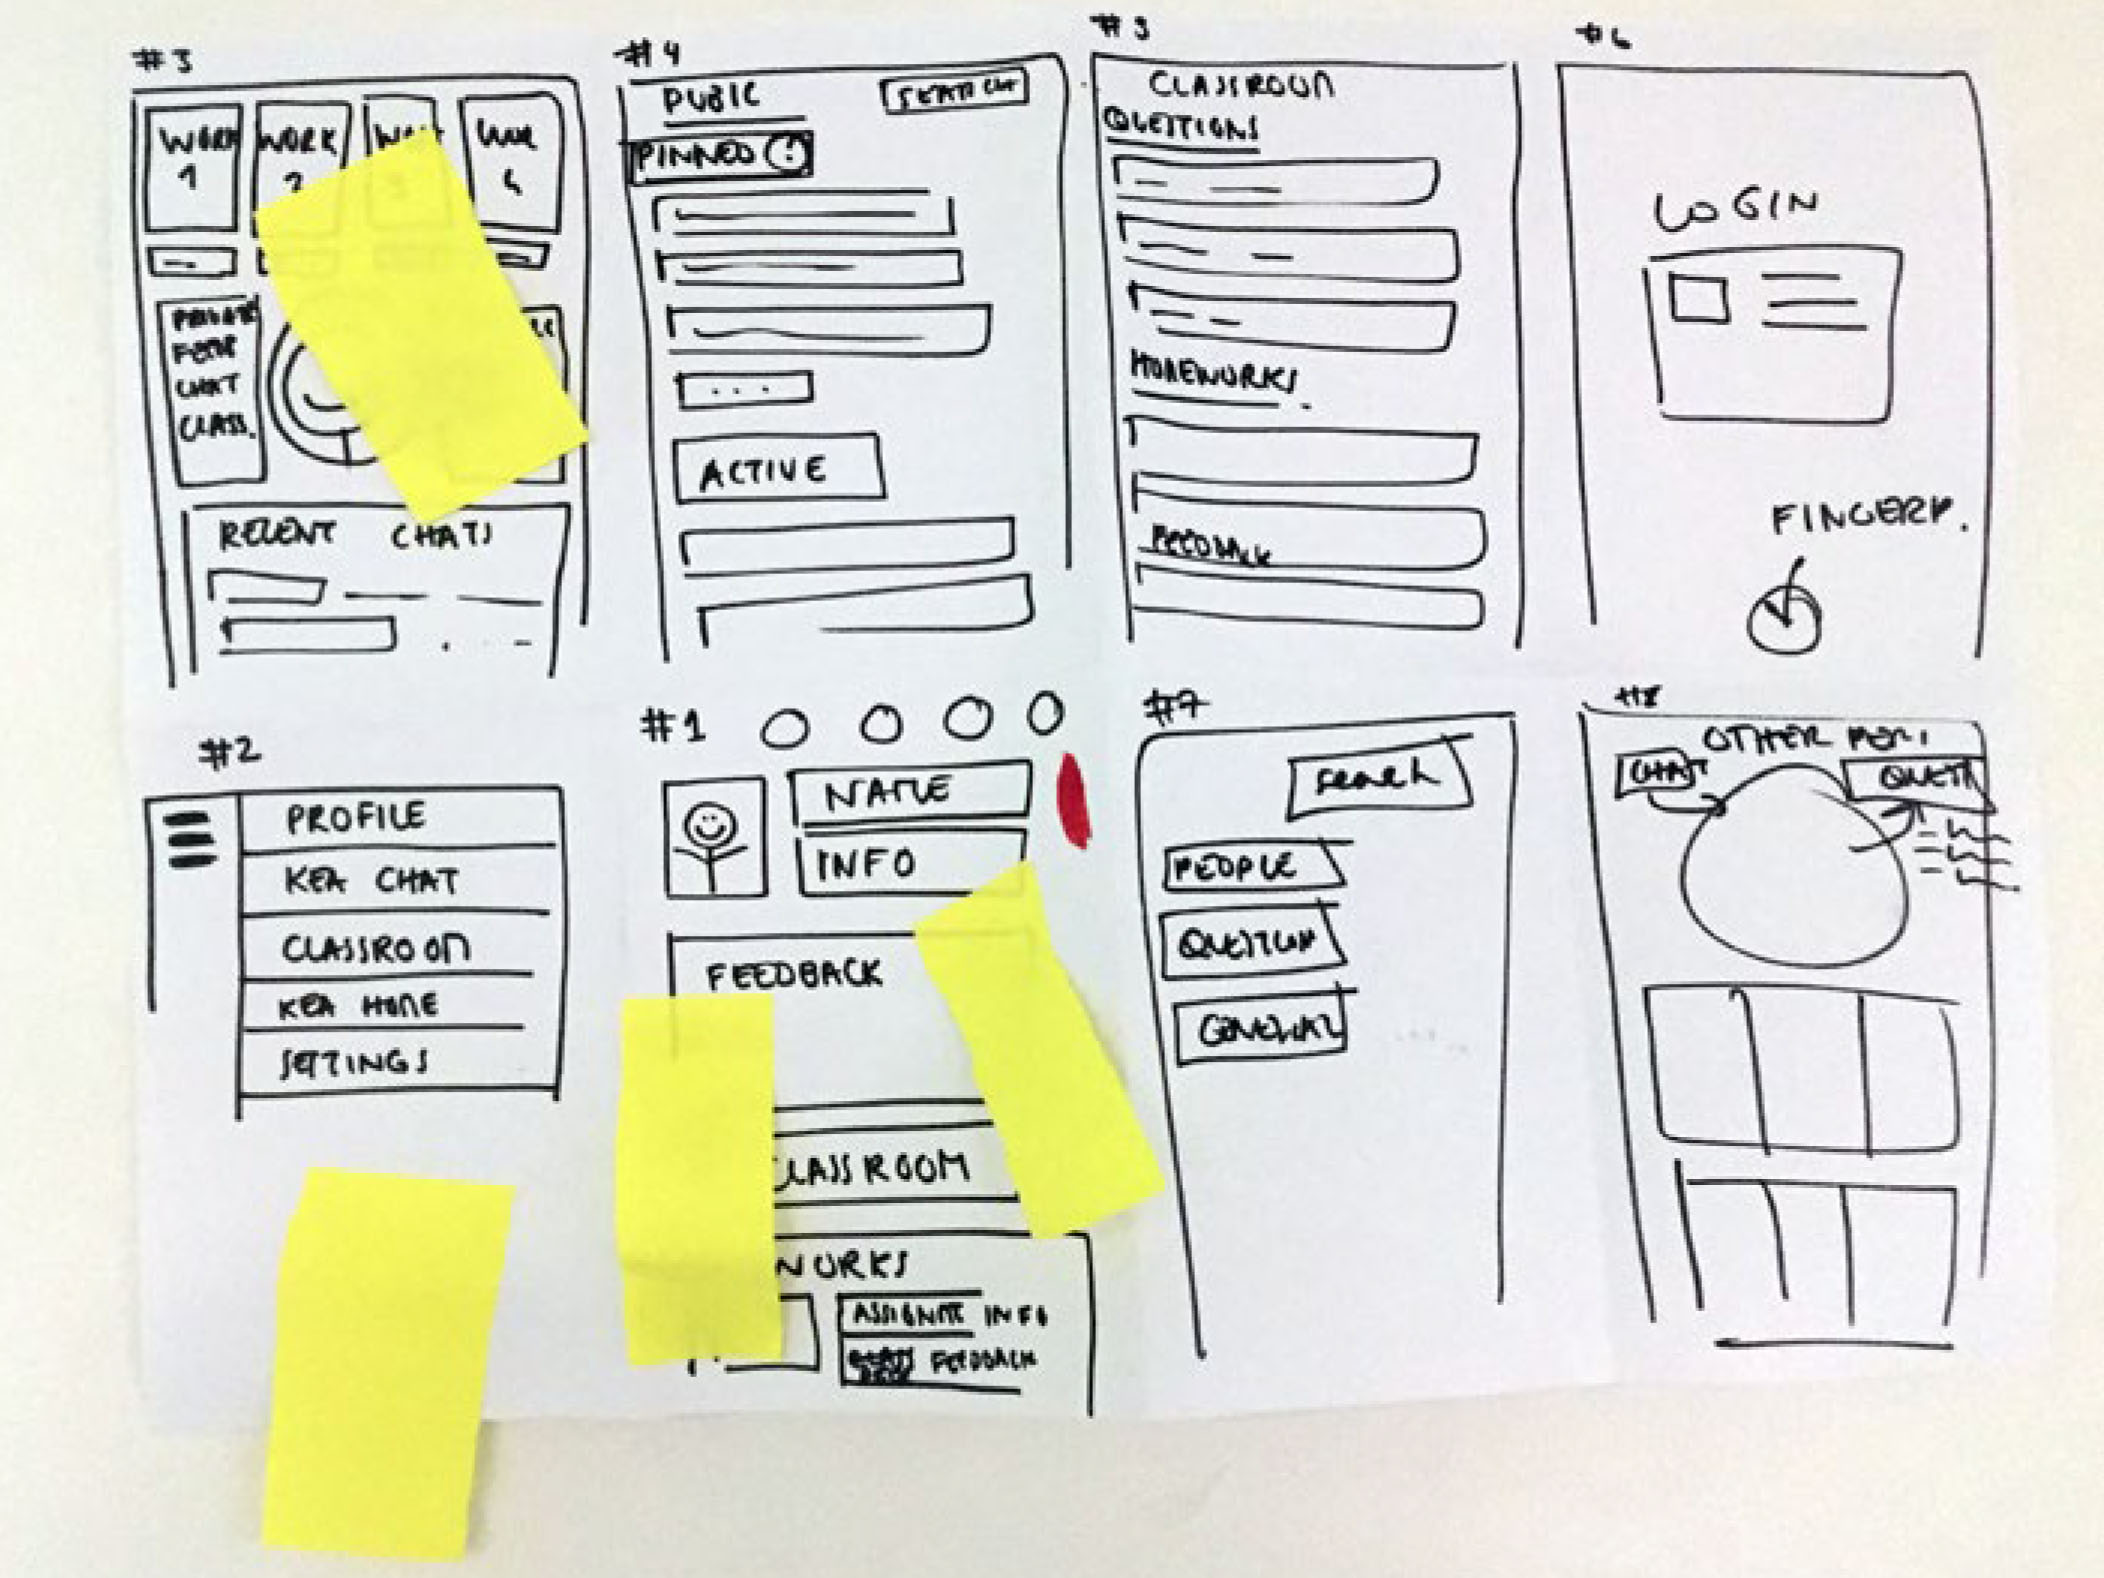 #3
WORK
1
WORK
2
WOR
4
PRIVATE
FEED
CHAT
CLASS.
RECENT CHATS
#4
PUBIC
SEARCH
PINNED !
...
ACTIVE
#5
CLASSROOM
QUESTIONS
HOMEWORKS
FEEDBACK
#6
LOGIN
FINGERP.
#2
PROFILE
KEA CHAT
CLASSROOM
KEA HOME
SETTINGS
#1
NAME
INFO
FEEDBACK
CLASSROOM
WORKS
INFO
FEEDBACK
#7
search
PEOPLE
QUESTION
GENERAL
#8
OTHER
CHAT